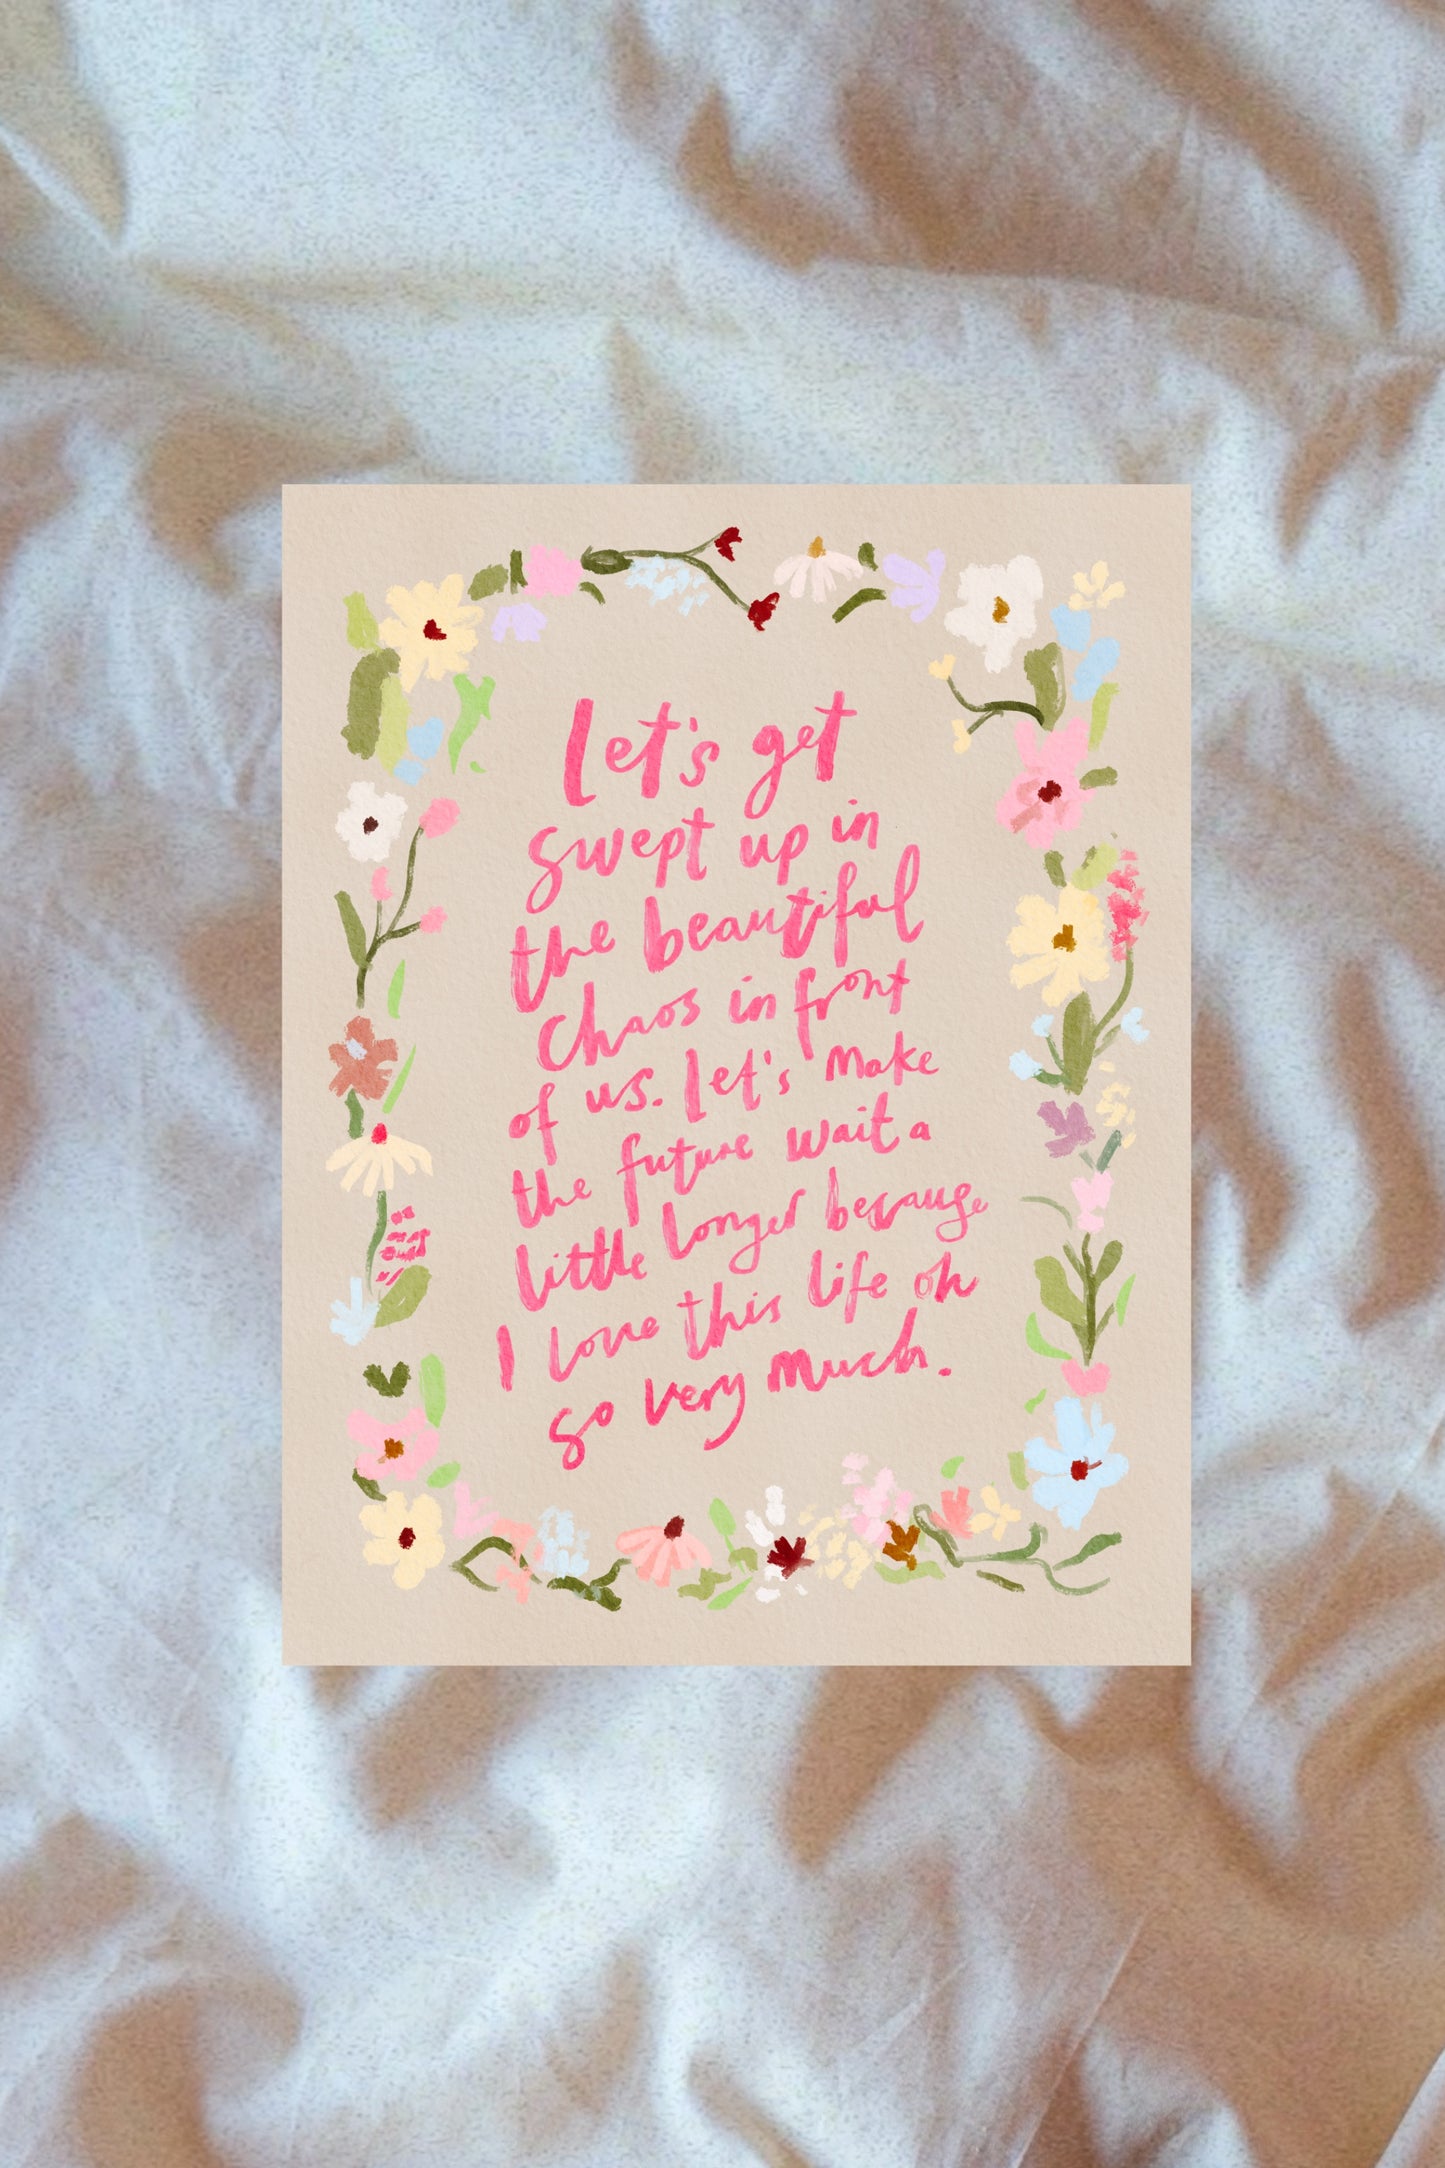 Let's get
swept up in
the beautiful
chaos in front
of us. Let's make
the future wait a
little longer because
I love this life oh
so very much.